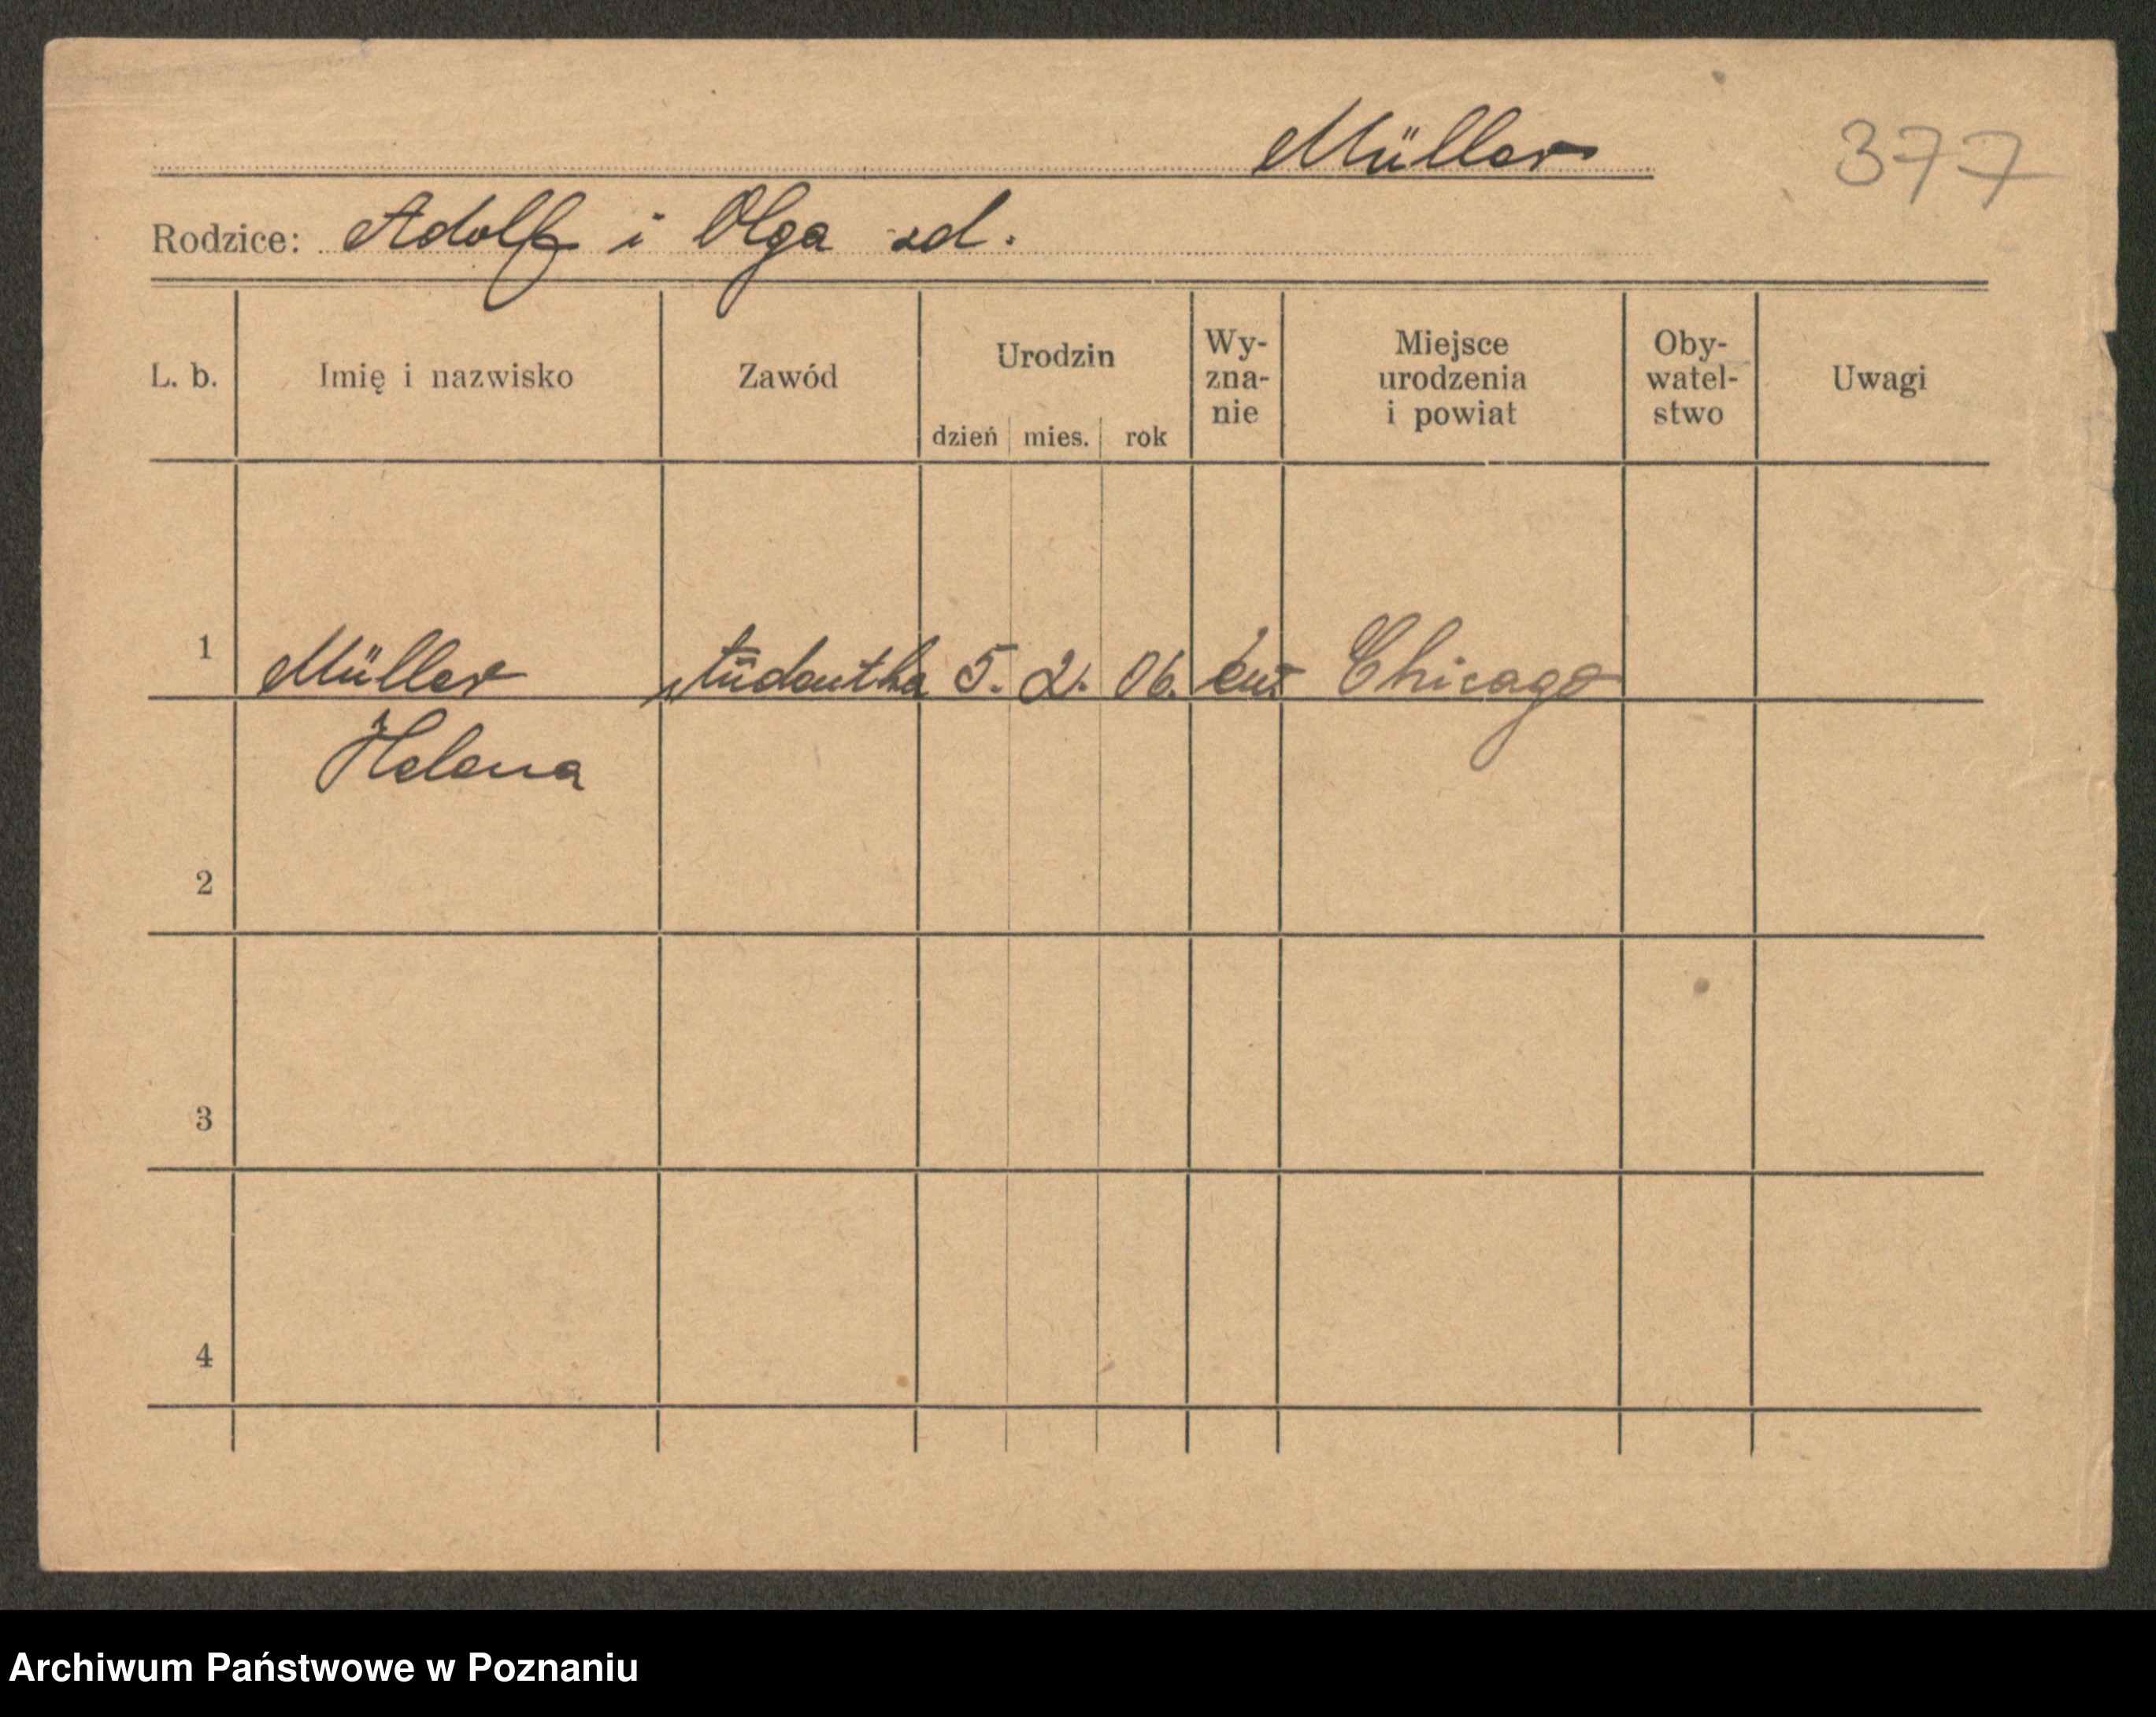 Müller
377
Rodzice: Adolf i Olga zd.
L. b.
Imię i nazwisko
Zawód
Urodzin
dzień mies. rok
Wy-
zna-
nie
Miejsce
urodzenia
i powiat
Oby-
watel-
stwo
Uwagi
1 Müller studentka 5. 2. 06. Chicago
Helena
2
3
4
Archiwum Państwowe w Poznaniu